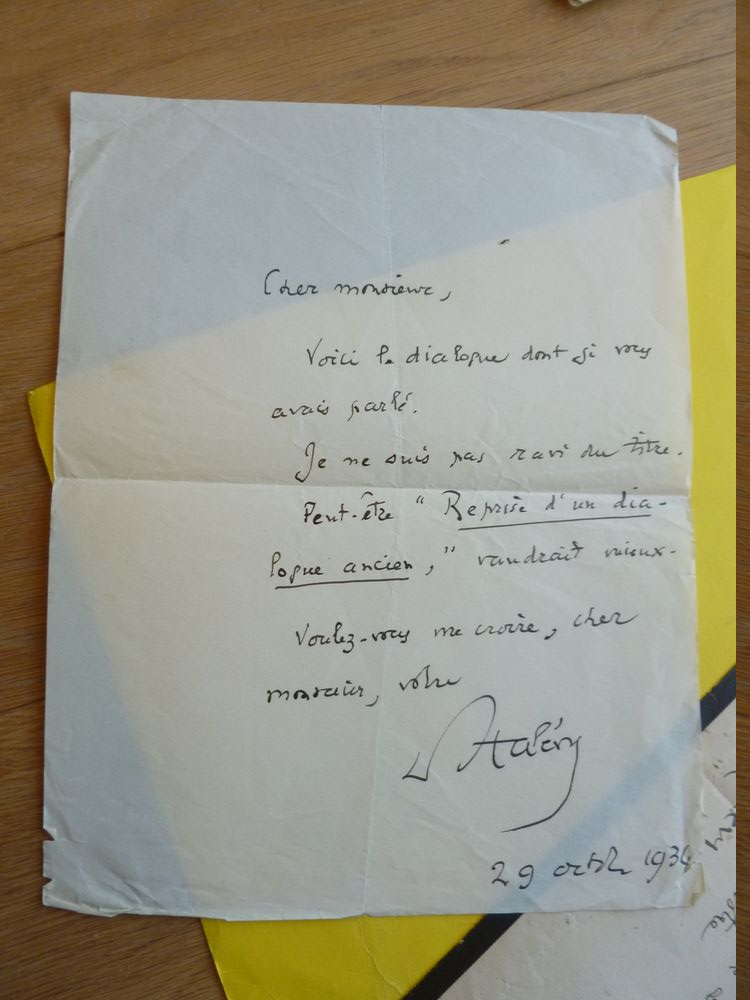 Cher monsieur,
Voici le dialogue dont je vous
avais parlé.
Je ne suis pas ravi du titre.
Peut-être " Reprise d'un dia-
logue ancien," vaudrait mieux.
Voulez-vous me croire, cher
monsieur, votre
D Halévy
29 octobre 1934